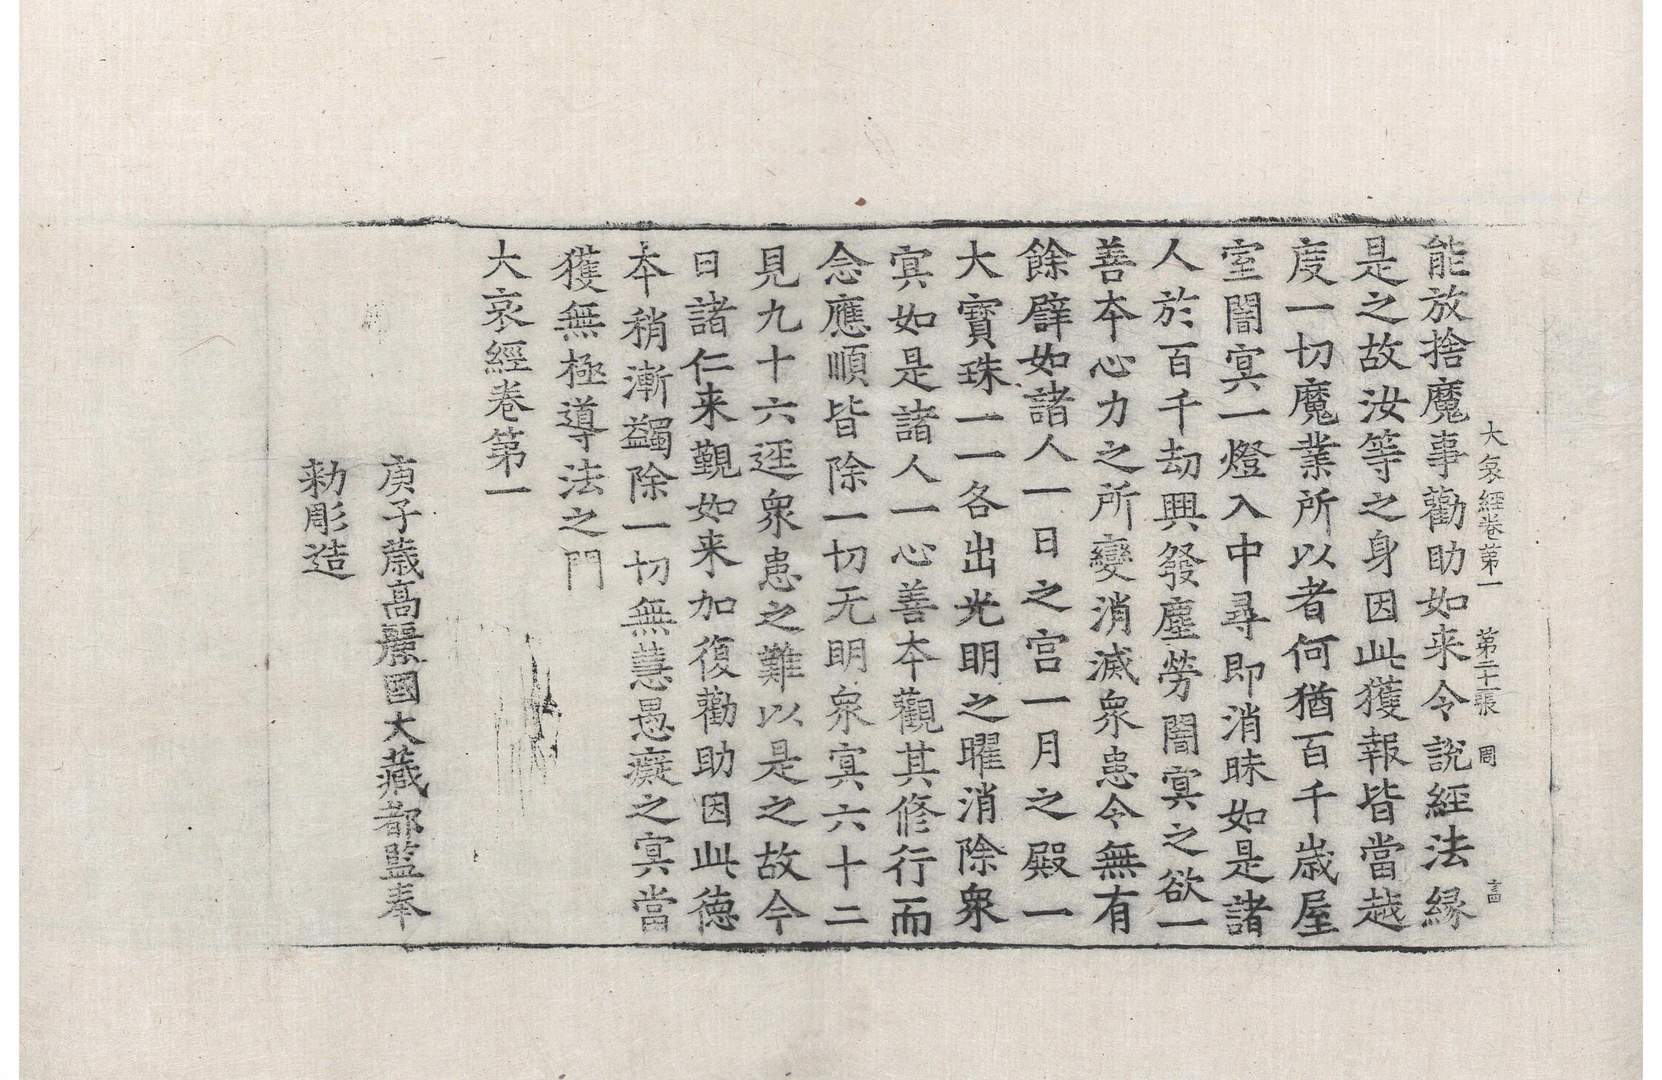 大哀經卷第一 第二十張 周
能放捨魔事勸助如来令說經法縁
是之故汝等之身因此獲報皆當越
度一切魔業所以者何猶百千歲屋
室闇㝠一燈入中尋即消昧如是諸
人於百千劫興發塵勞闇㝠之欲一
善本心力之所變消滅衆患令無有
餘譬如諸人一日之宫一月之殿一
大寳珠一一各出光明之曜消除衆
㝠如是諸人一心善本觀其修行而
念應順皆除一切无明衆㝠六十二
見九十六逕衆患之難以是之故今
日諸仁来觀如来加復勸助因此德
本稍漸蠲除一切無慧愚癡之㝠當
獲無極導法之門
大哀經卷第一
庚子歲高麗國大藏都監奉
勑彫造